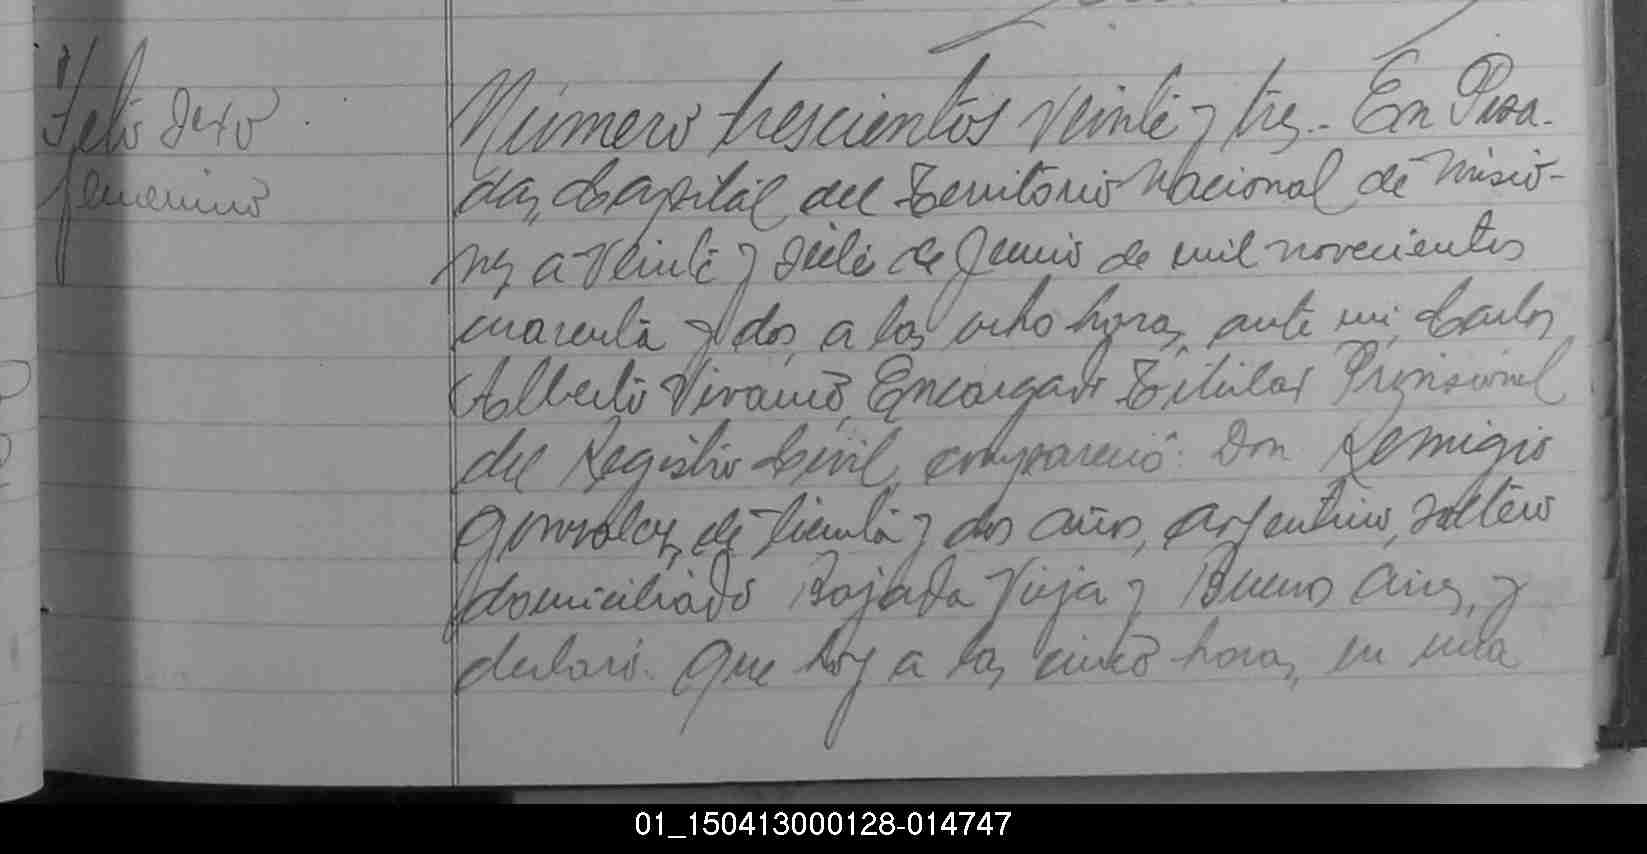 Feto sexo
femenino
Número trescientos veinte y tres.- En Posa-
das, Capital del Territorio Nacional de Misio-
nes a veinte y siete de Junio de mil novecientos
cuarenta y dos, a las ocho horas, ante mi, Carlos
Alberto Vivanco, Encargado Titular Provisional
del Registro Civil, compareció: Don Remigio
Gonzalez, de treinta y dos años, argentino, soltero
domiciliado Bajada Vieja y Buenos Aires, y
declaró: Que hoy a las cinco horas, en una
01_150413000128-014747